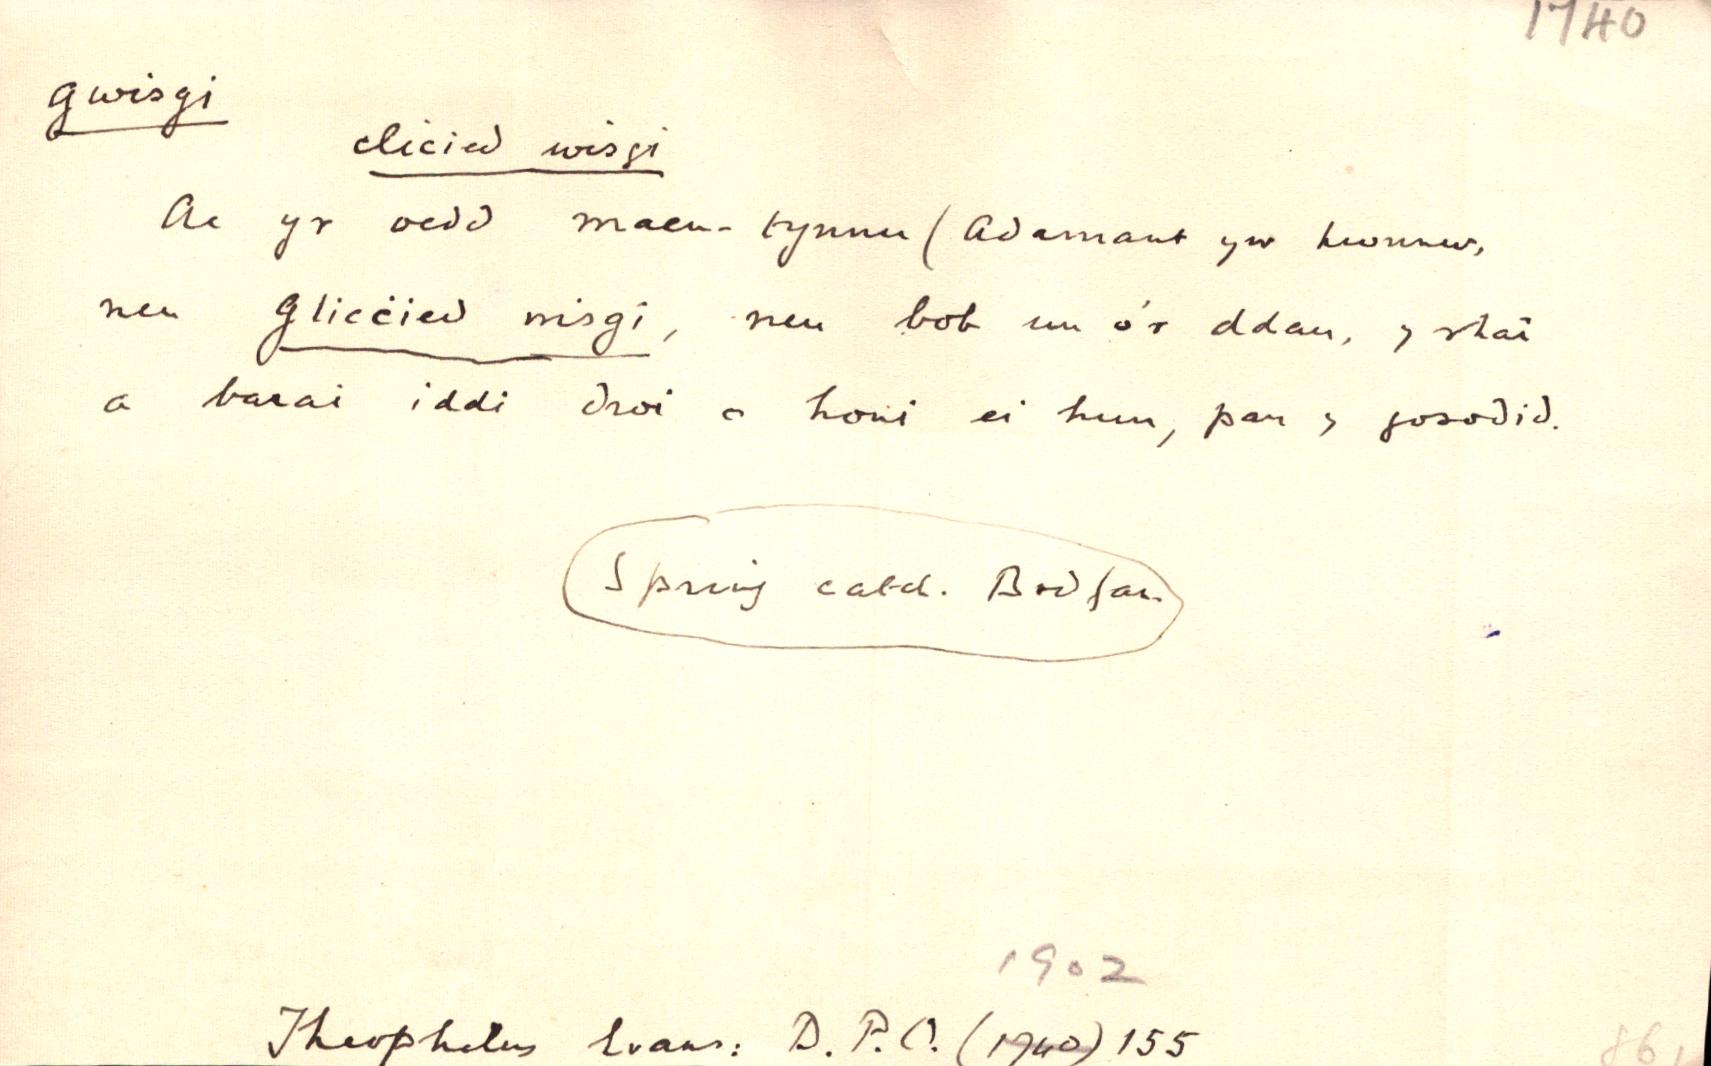 1740
gwisgi
clicied wisgi
Ac yr oedd maen-tynnu (Adamant yw hwnnw,
neu gliccied wisgi, neu bob un o'r ddau, y rhai
a barai iddi droi o honi ei hun, pan y gosodid.
Spring catch. Bodfan.
1902
Theophilus Evans: D.P.O. (1740) 155